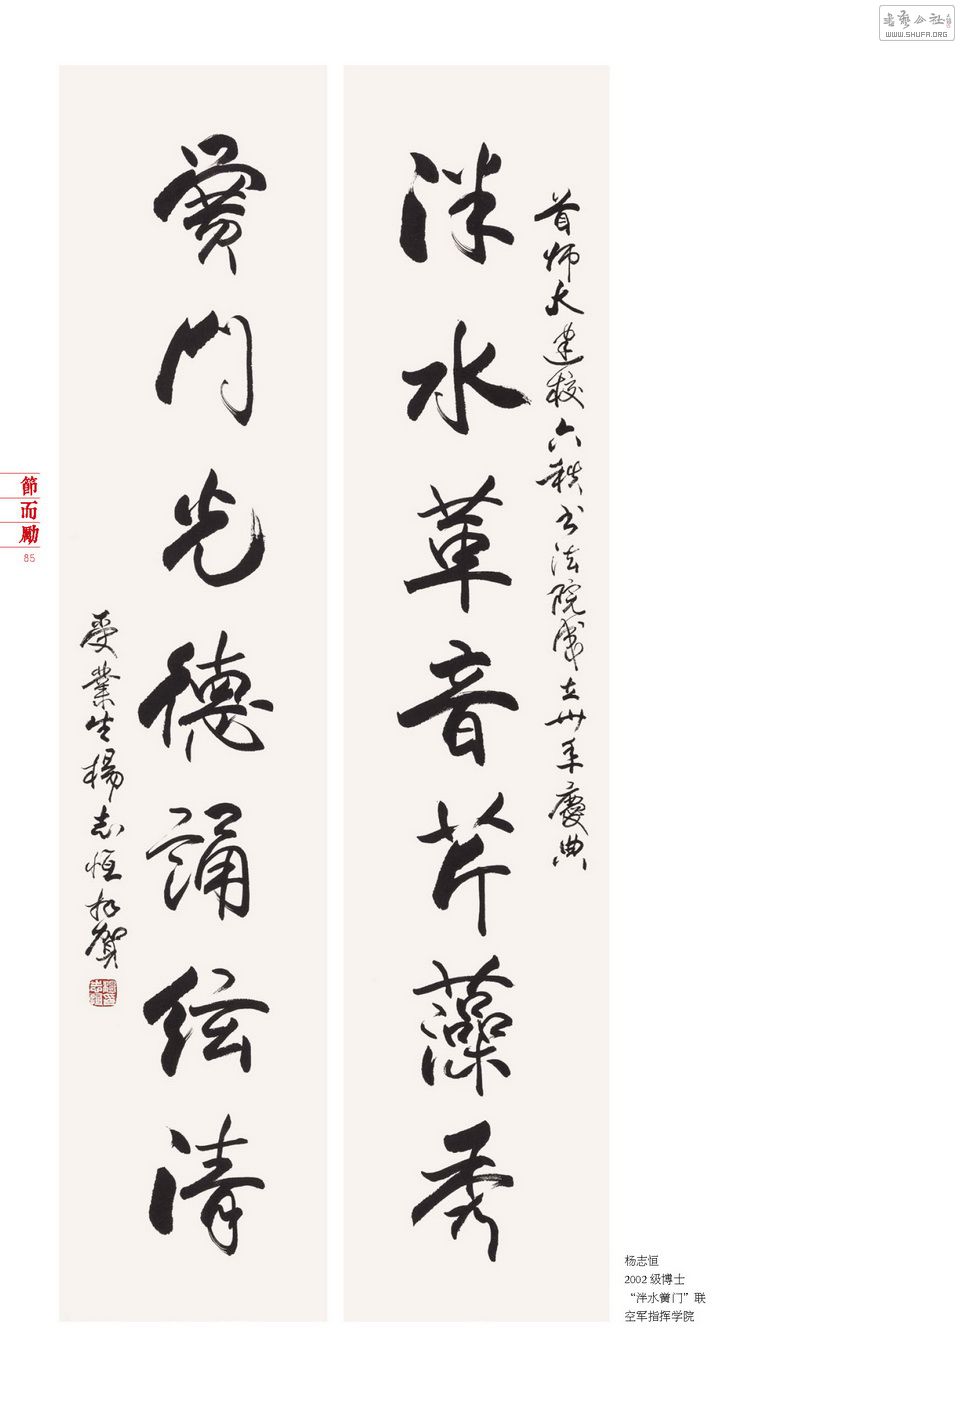 書藝公社
WWW.SHUFA.ORG
首师大建校六秩书法院成立卅年慶典
泮水革音芹藻秀
黌門光德誦絃清
受業生楊志恒拜賀
節而勵
85
杨志恒
2002 级博士
“泮水黉门”联
空军指挥学院